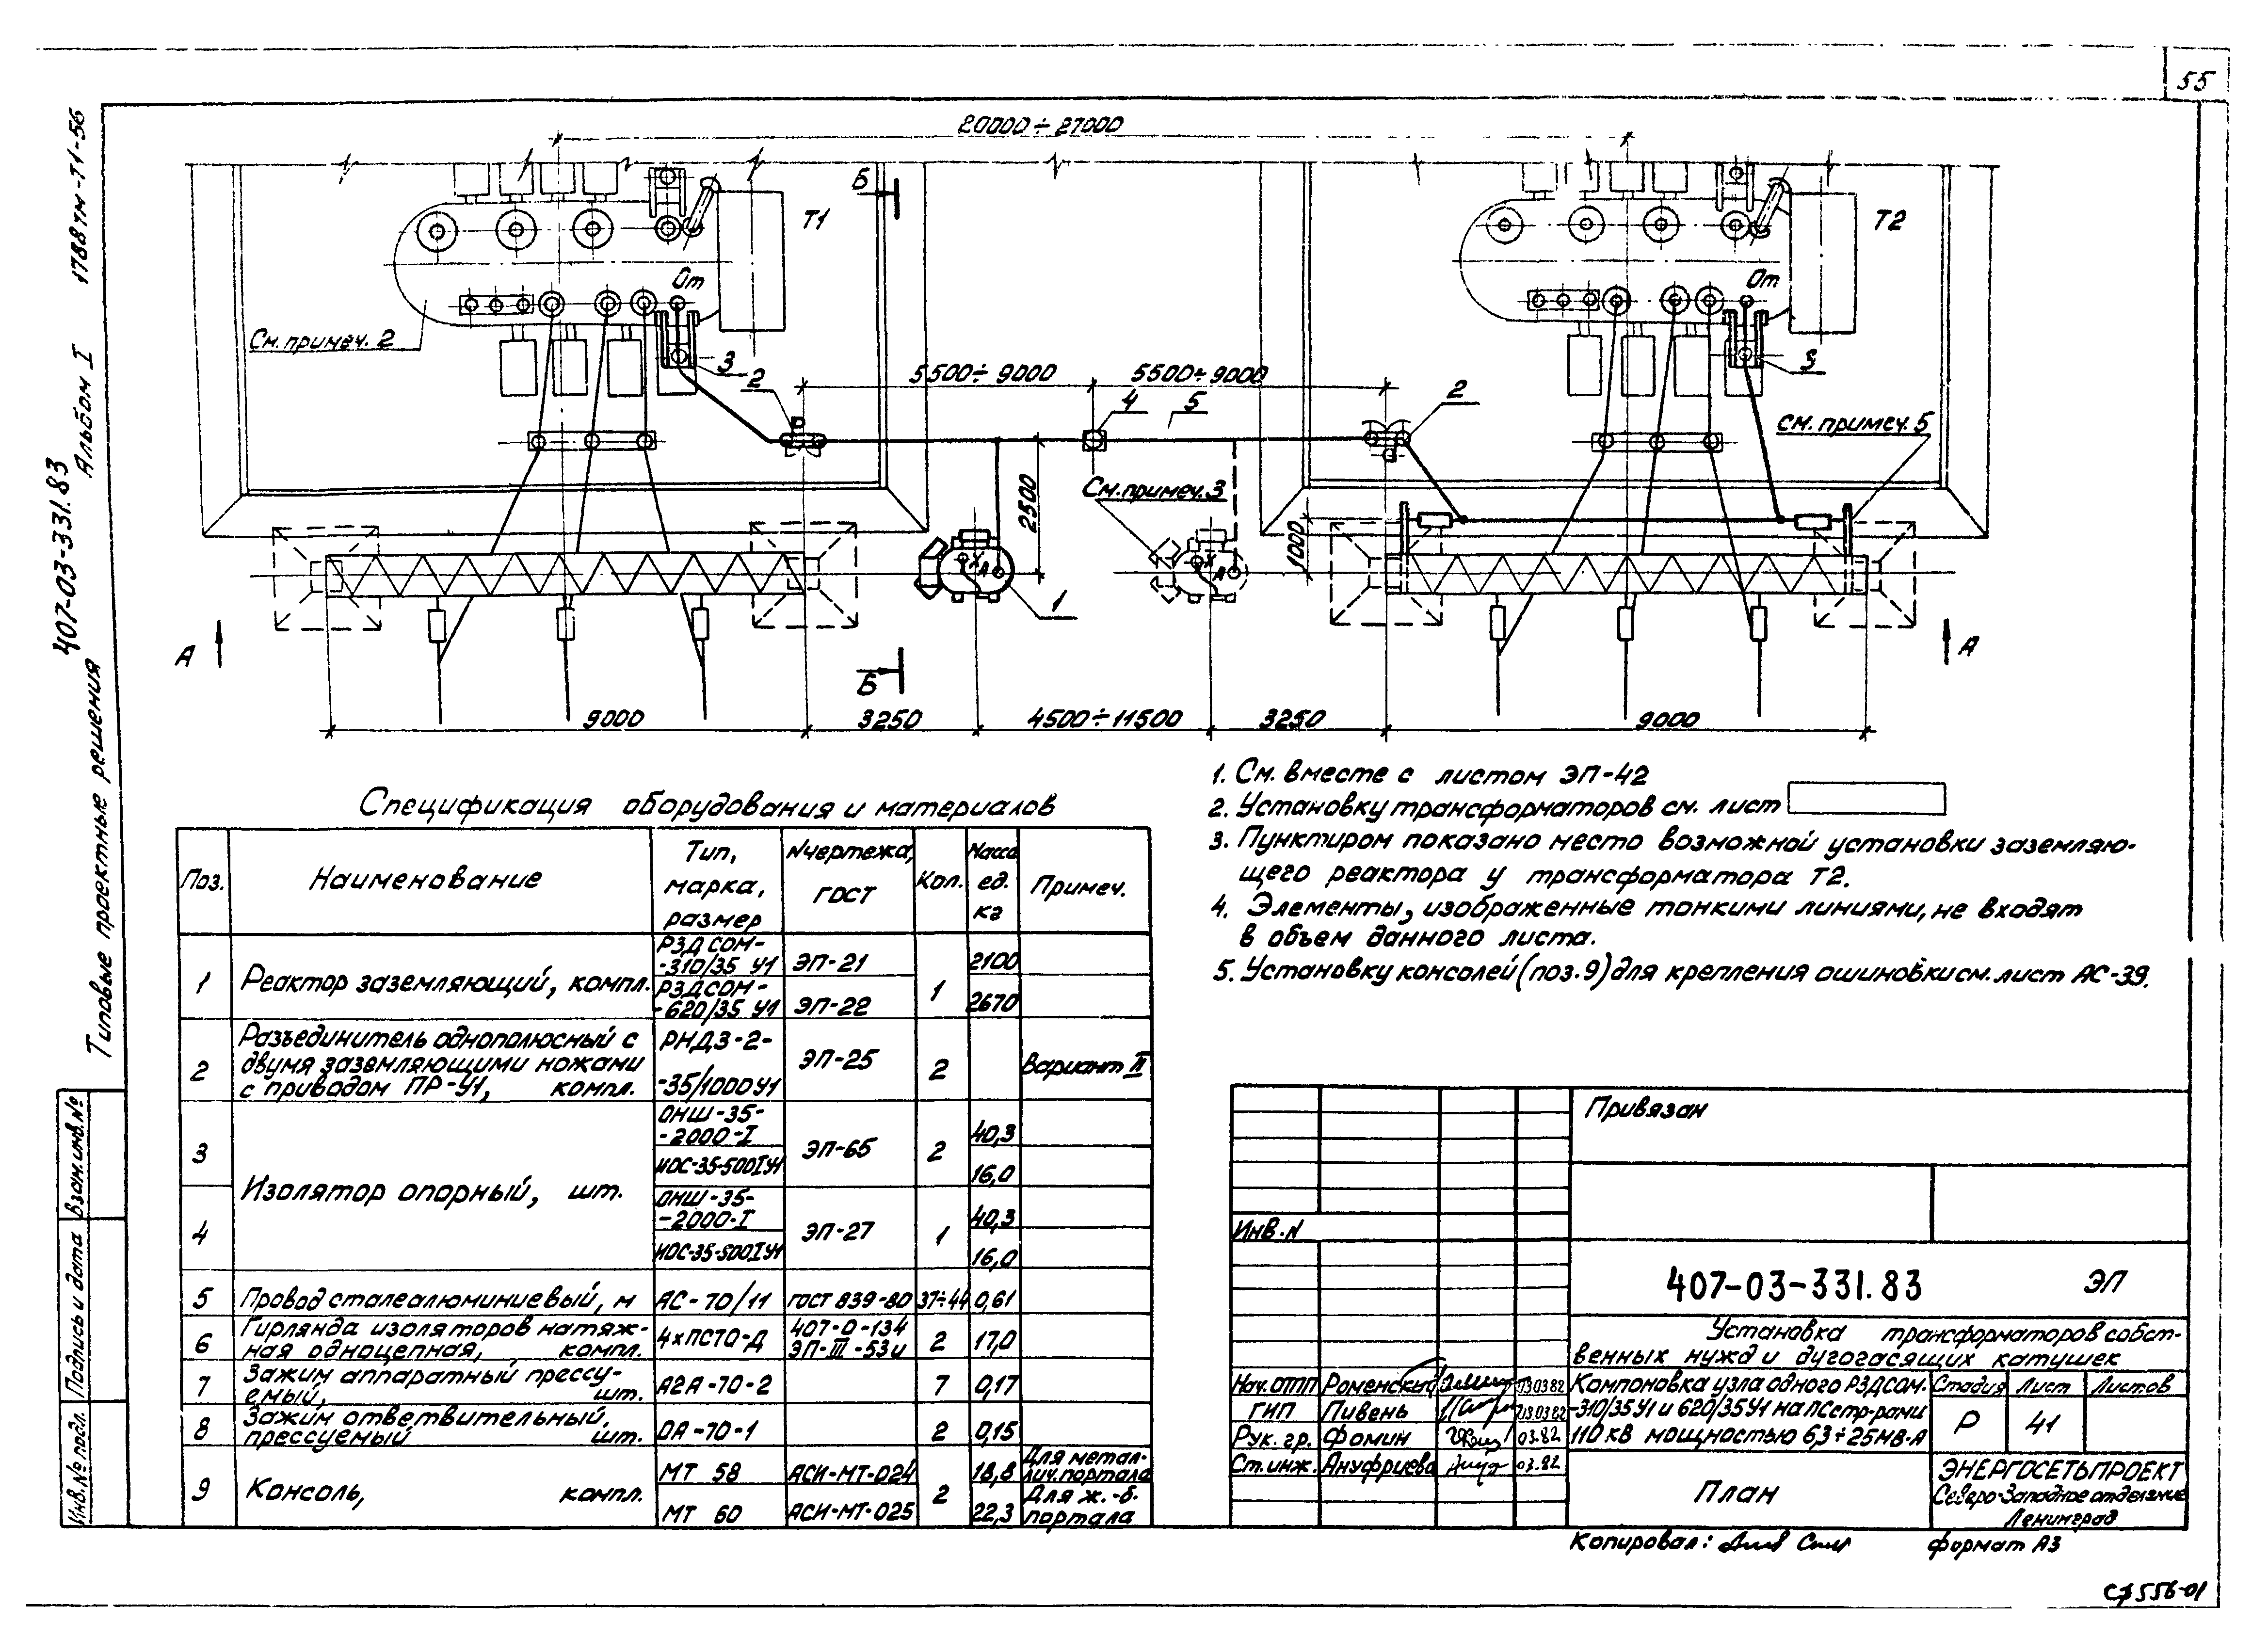 55
1788тм-Т1-56
Альбом I
407-03-331.83
Типовые проектные решения
Взам.инв.№
Подпись и дата
Инв.№ подл.
20000÷27000
Б
Т1
Т2
От
От
См. примеч. 2
3
2
5500÷9000
5500÷9000
4
5
2
3
см. примеч. 5
2500
См. примеч. 3
1000
Х
А
Х
А
1
А
Б
А
9000
3250
4500÷11500
3250
9000
1. См. вместе с листом ЭП-42
2. Установку трансформаторов см. лист
3. Пунктиром показано место возможной установки заземляю-
щего реактора у трансформатора Т2.
4. Элементы, изображенные тонкими линиями, не входят
в объем данного листа.
5. Установку консолей (поз.9) для крепления ошиновки см. лист АС-39.
Спецификация оборудования и материалов
Поз. Наименование Тип, марка, размер Nчертежа, ГОСТ Кол. Масса ед. кг Примеч.
1 Реактор заземляющий, компл. РЗДСОМ-310/35 У1 ЭП-21 1 2100
РЗДСОМ-620/35 У1 ЭП-22 2670
2 Разъединитель однополюсный с РНДЗ-2-
двумя заземляющими ножами ЭП-25 2 Вариант II
с приводом ПР-У1, компл. -35/1000У1
3 Изолятор опорный, шт. ОНШ-35-2000-I ЭП-65 2 40,3
ИОС-35-500IУ1 16,0
4 ОНШ-35-2000-I ЭП-27 1 40,3
ИОС-35-500IУ1 16,0
5 Провод сталеалюминиевый, м АС-70/11 ГОСТ 839-80 37÷44 0,61
6 Гирлянда изоляторов натяж- 4хПС70-Д 407-0-134 2 17,0
ная одноцепная, компл. ЭП-III-53и
7 Зажим аппаратный прессу- А2А-70-2 7 0,17
емый, шт.
8 Зажим ответвительный, ОА-70-1 2 0,15
прессуемый шт.
9 Консоль, компл. МТ 58 АСИ-МТ-024 2 18,8 Для метал-
лич. портала
МТ 60 АСИ-МТ-025 22,3 Для ж.-б.
портала
Привязан
Инв. N
407-03-331.83 ЭП
Установка трансформаторов собст-
венных нужд и дугогасящих катушек
Нач. ОТП Роменский 03.03.82
ГИП Пивень 03.03.82
Рук. гр. Фомин 03.82
Ст. инж. Ануфриева 03.82
Компоновка узла одного РЗДСОМ-
-310/35У1 и 620/35У1 на ПС с тр-рами
110 кВ мощностью 6,3÷25 МВ·А
Стадия Лист Листов
Р 41
План
ЭНЕРГОСЕТЬПРОЕКТ
Северо-Западное отделение
Ленинград
Копировал:
формат А3
556-01